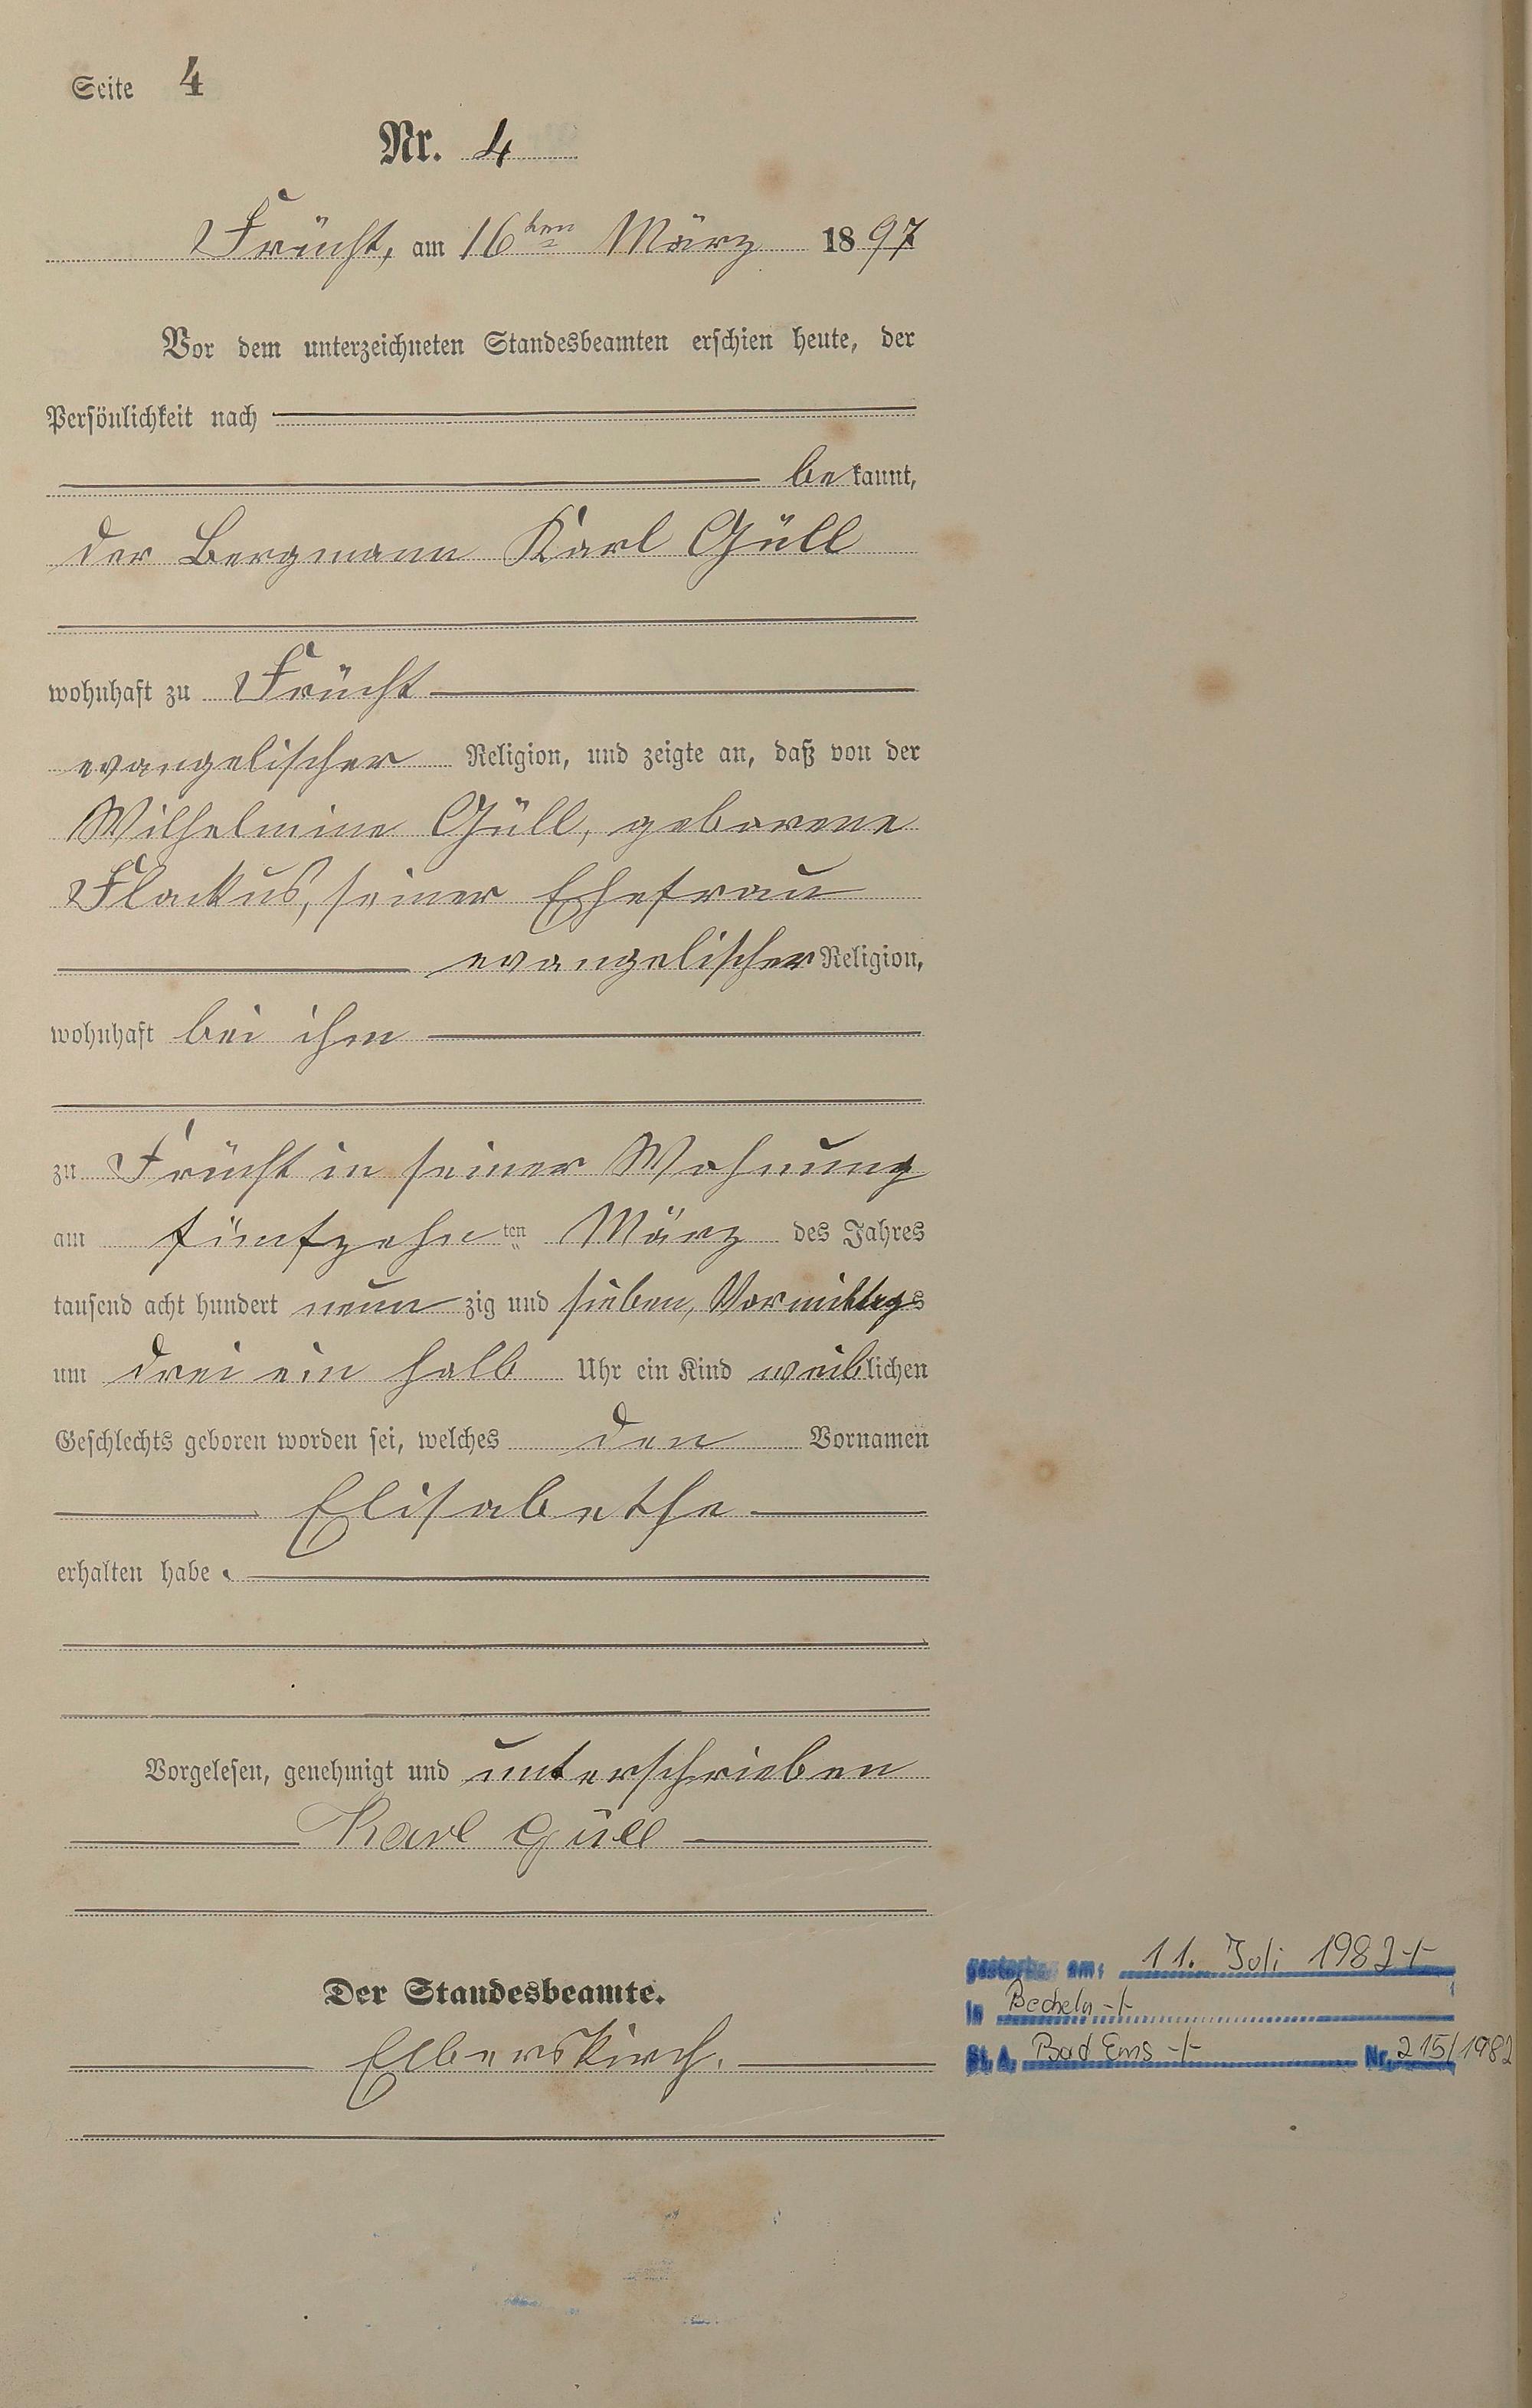 Seite 4
Nr. 4
Frücht, am 16ten März 1897
Vor dem unterzeichneten Standesbeamten erschien heute, der
Persönlichkeit nach
bekannt,
der Bergmann Karl Güll
wohnhaft zu Frücht
evangelischer Religion, und zeigte an, daß von der
Wilhelmine Güll, geborene
Flackus, seiner Ehefrau
evangelischer Religion,
wohnhaft bei ihm
zu Frücht in seiner Wohnung
am fünfzehnten März des Jahres
tausend acht hundert neunzig und sieben, Vormittags
um drei ein halb Uhr ein Kind weiblichen
Geschlechts geboren worden sei, welches den Vornamen
Elisabethe
erhalten habe.
Vorgelesen, genehmigt und unterschrieben
Karl Güll
Der Standesbeamte.
Elberskirch.
gestorben am: 11. Juli 1982 +
in Becheln +
St. A. Bad Ems + Nr. 215/1982